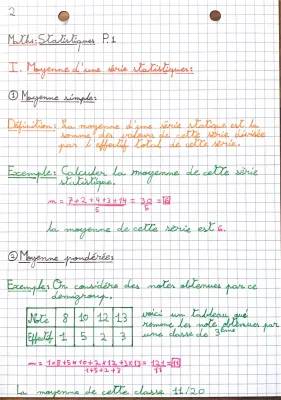 2
Maths: Statistiques P.1
I. Moyenne d'une série statistiques:
① Moyenne simple:
Définition: La moyenne d'une série statique est la
somme des valeurs de cette série divisée
par l'effectif total de cette série.
Exemple: Calculer la moyenne de cette série
statistique.
m = 7+2+4+3+14 / 5 = 30 / 5 = 6
La moyenne de cette série est 6.
② Moyenne pondérée:
Exemple: On considère des notes obtenues par ce
demigroup.
Note 8 10 12 13
Effectif 1 5 2 3
voici un tableau qui
résume les note obtenues par
une classe de 3ème
m = 1×8+5×10+2×12+3×13 / 1+5+2+3 = 121 / 11 = 11
La moyenne de cette classe 11/20